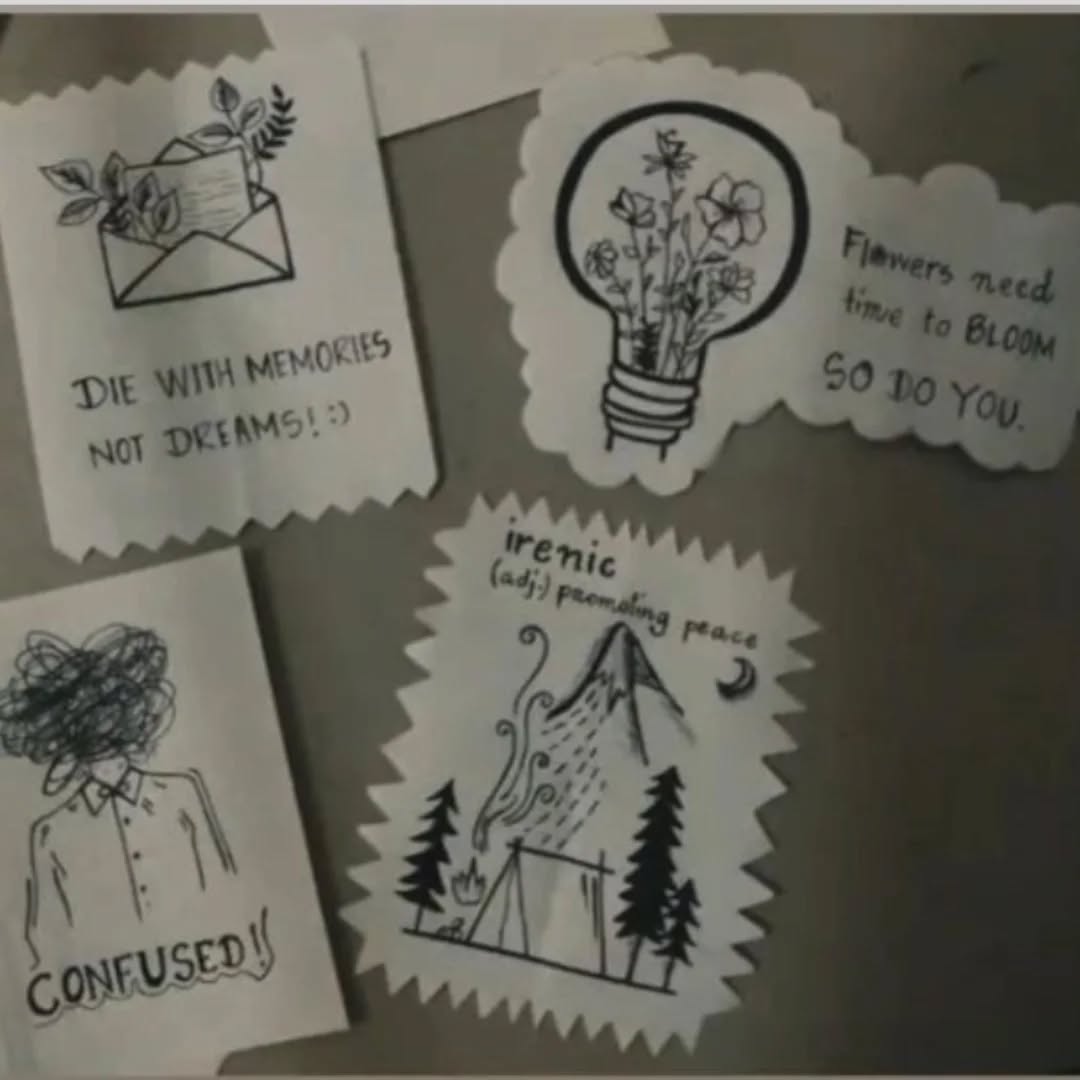 DIE WITH MEMORIES
NOT DREAMS! :)
Flowers need
time to BLOOM
SO DO YOU.
irenic
(adj.) promoting peace
CONFUSED!